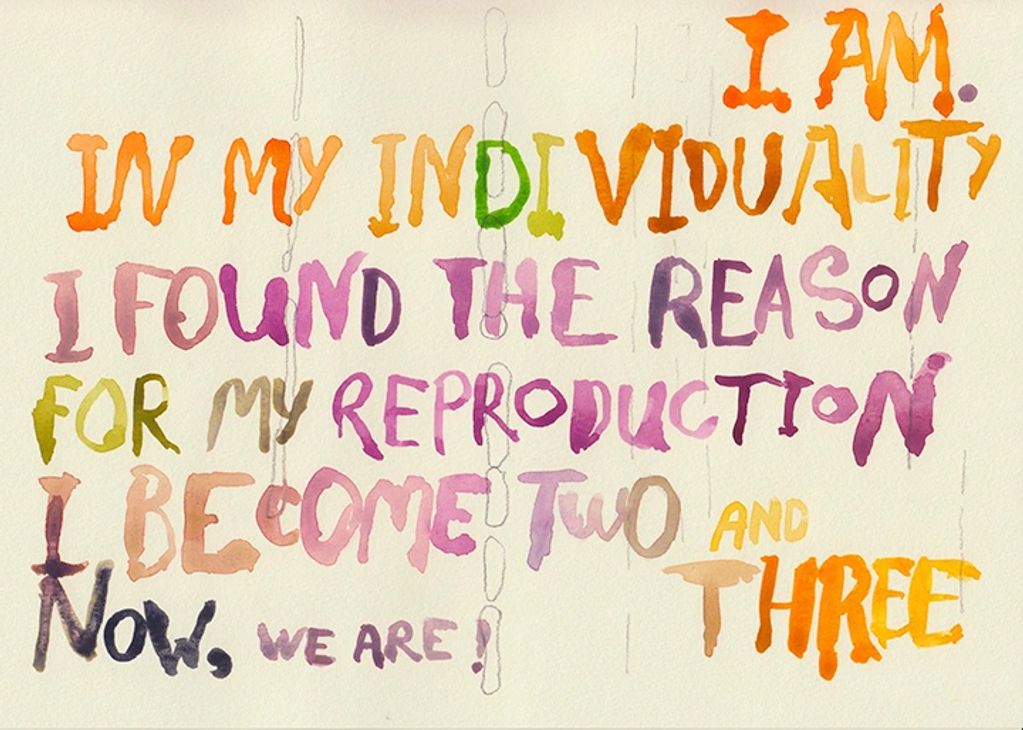 I AM.
IN MY INDIVIDUALITY
I FOUND THE REASON
FOR MY REPRODUCTION
I BECOME TWO AND
THREE
NOW, WE ARE!